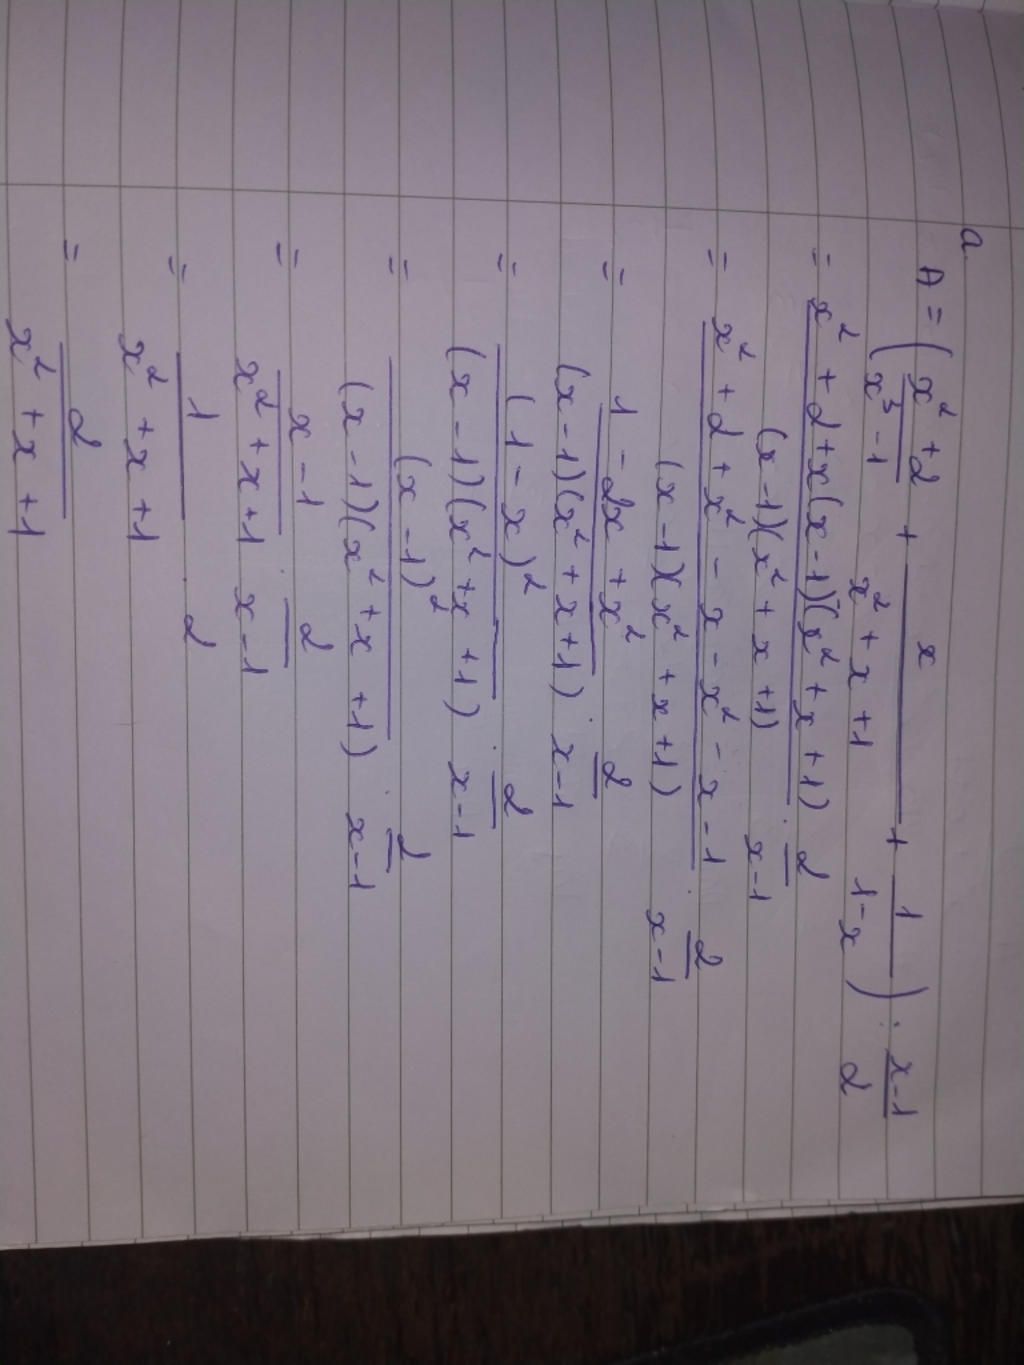 a.
A = ( x² + 2 / x³ - 1 + x / x² + x + 1 + 1 / 1 - x ) : x - 1 / 2
= x² + 2 + x(x - 1) - (x² + x + 1) / (x - 1)(x² + x + 1) . 2 / x - 1
= x² + 2 + x² - x - x² - x - 1 / (x - 1)(x² + x + 1) . 2 / x - 1
= 1 - 2x + x² / (x - 1)(x² + x + 1) . 2 / x - 1
= (1 - x)² / (x - 1)(x² + x + 1) . 2 / x - 1
= (x - 1)² / (x - 1)(x² + x + 1) . 2 / x - 1
= x - 1 / x² + x + 1 . 2 / x - 1
= 1 / x² + x + 1 . 2
= 2 / x² + x + 1